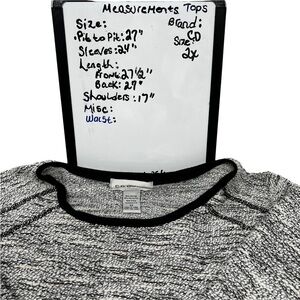 Measurements Tops
Size: Brand: CD
• Pit to Pit: 27" Size: 2x
Sleeves: 24"
Length:
Front: 27 1/2"
Back: 29"
Shoulders: 17"
Misc:
Waist: